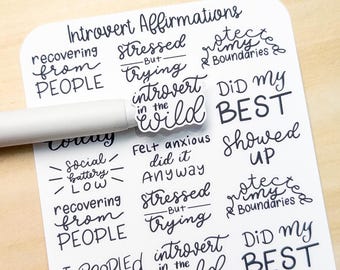 Introvert Affirmations
recovering
from
PEOPLE
stressed
BUT
trying
otect
my
Boundaries
introvert
in the
Wild
DID my
BEST
social
battery
LOW
FELT anxious
did it
ANYWAY
showed
UP
recovering
from
PEOPLE
stressed
BUT
trying
otect
my
Boundaries
I PEOPLED
introvert
in the
DID my
BEST